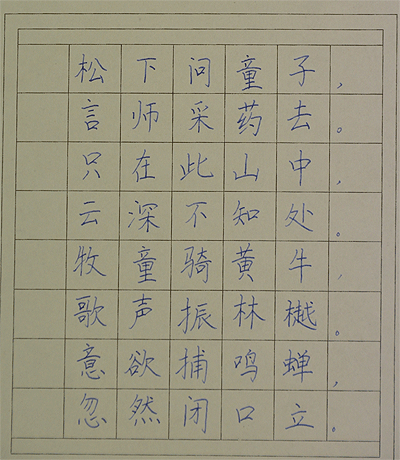 松下问童子，
言师采药去。
只在此山中，
云深不知处。
牧童骑黄牛，
歌声振林樾。
意欲捕鸣蝉，
忽然闭口立。